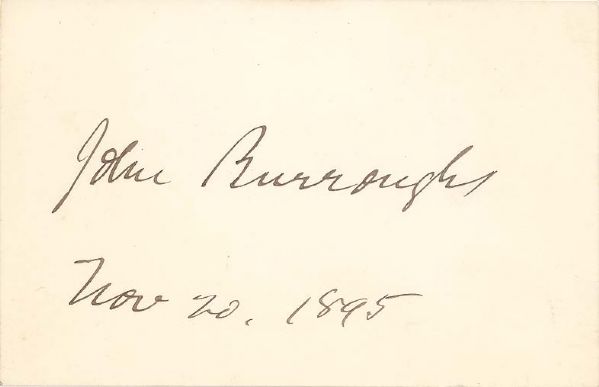 John Burroughs
Nov 20, 1895